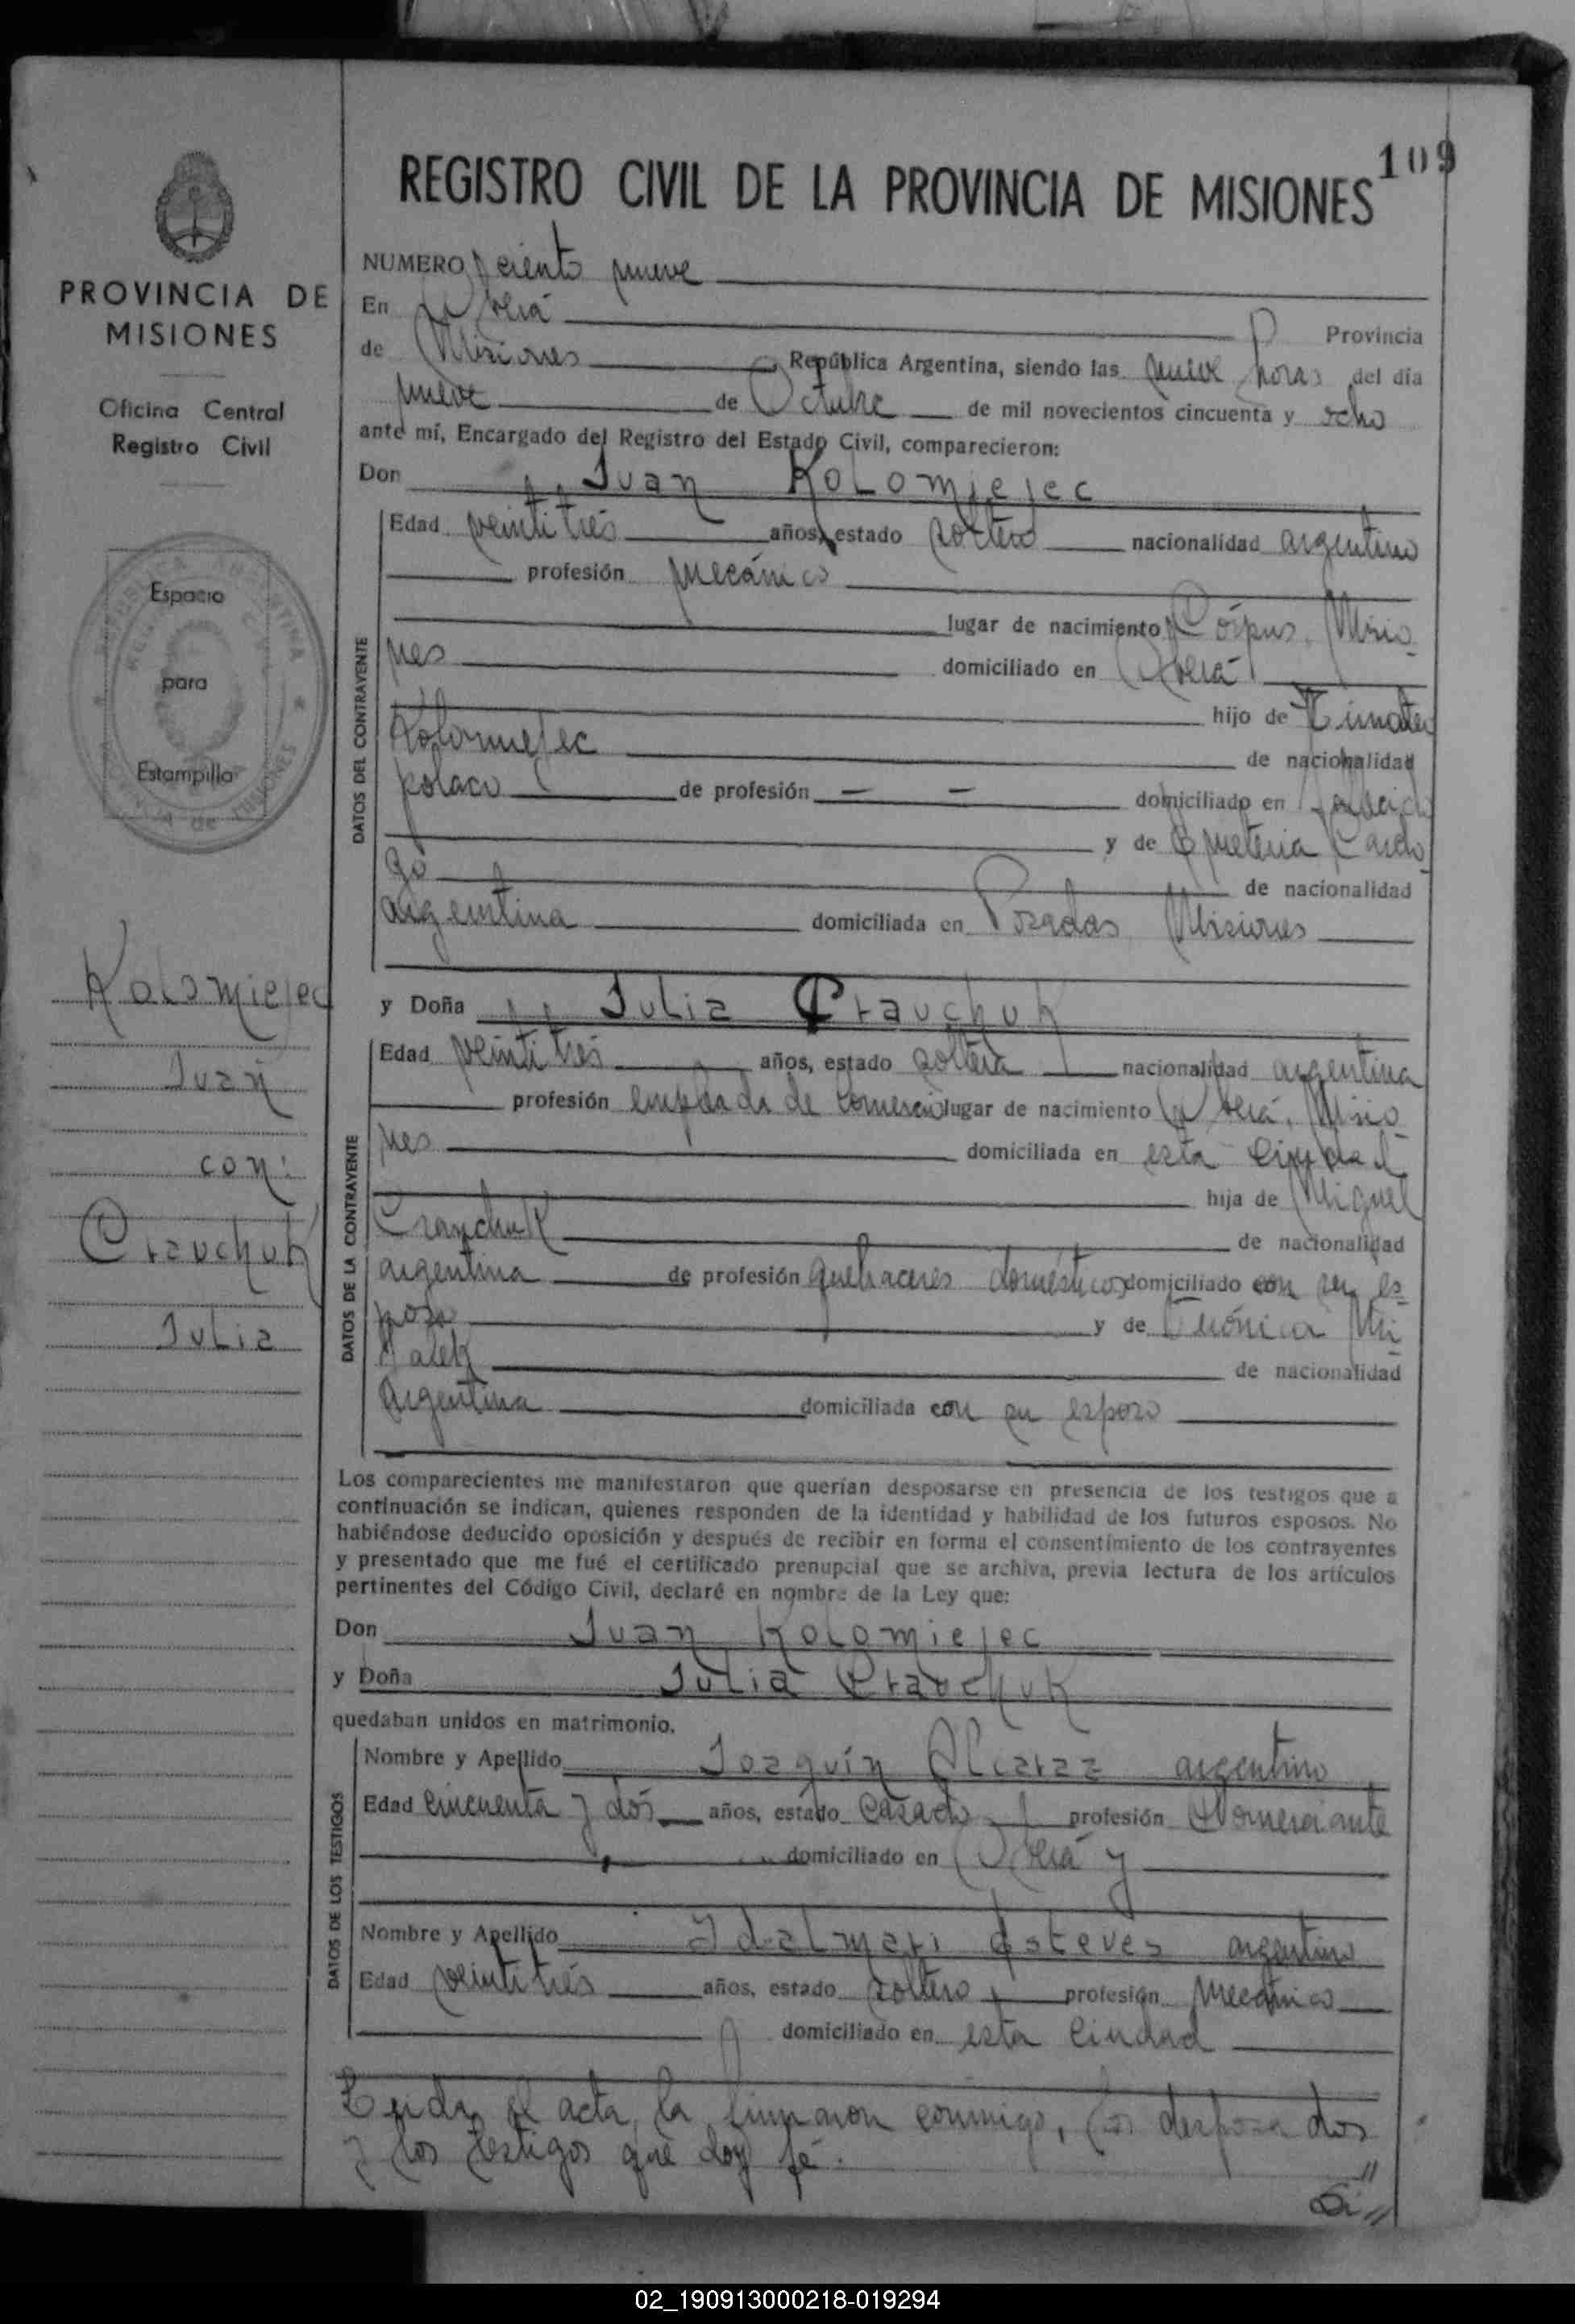 109
REGISTRO CIVIL DE LA PROVINCIA DE MISIONES
PROVINCIA DE
MISIONES
Oficina Central
Registro Civil
Espacio
para
Estampilla
Kolomiejec
Juan
con:
Crauchuk
Julia
NUMERO ciento nueve
En Oberá Provincia
de Misiones República Argentina, siendo las nueve horas del día
nueve de Octubre de mil novecientos cincuenta y ocho
ante mí, Encargado del Registro del Estado Civil, comparecieron:
Don Juan Kolomiejec
DATOS DEL CONTRAYENTE
Edad veintitrés años, estado soltero nacionalidad argentino
profesión mecánico
lugar de nacimiento Córpus, Misio-
nes domiciliado en Oberá
hijo de Timoteo
Kolomiejec de nacionalidad
polaco de profesión — — domiciliado en fallecido
y de Cardo
zo de nacionalidad
argentina domiciliada en Posadas Misiones
y Doña Julia Crauchuk
DATOS DE LA CONTRAYENTE
Edad veintitrés años, estado soltera nacionalidad argentina
profesión empleada de Comercio lugar de nacimiento Oberá, Misio-
nes domiciliada en esta Ciudad
hija de Miguel
Crauchuk de nacionalidad
argentina de profesión quehaceres domésticos domiciliado con su es-
poso y de Verónica Mi-
de nacionalidad
Argentina domiciliada con su esposo
Los comparecientes me manifestaron que querían desposarse en presencia de los testigos que a
continuación se indican, quienes responden de la identidad y habilidad de los futuros esposos. No
habiéndose deducido oposición y después de recibir en forma el consentimiento de los contrayentes
y presentado que me fué el certificado prenupcial que se archiva, previa lectura de los artículos
pertinentes del Código Civil, declaré en nombre de la Ley que:
Don Juan Kolomiejec
y Doña Julia Crauchuk
quedaban unidos en matrimonio.
DATOS DE LOS TESTIGOS
Nombre y Apellido Joaquín Alcaraz argentino
Edad cincuenta y dós años, estado casado profesión Comerciante
domiciliado en Oberá y
Nombre y Apellido Idalmari Esteves argentino
Edad veintitrés años, estado soltero profesión Mecánico
domiciliado en esta Ciudad
Leida el acta, la firmaron conmigo, los desposados
y los testigos que doy fé.
02_190913000218-019294